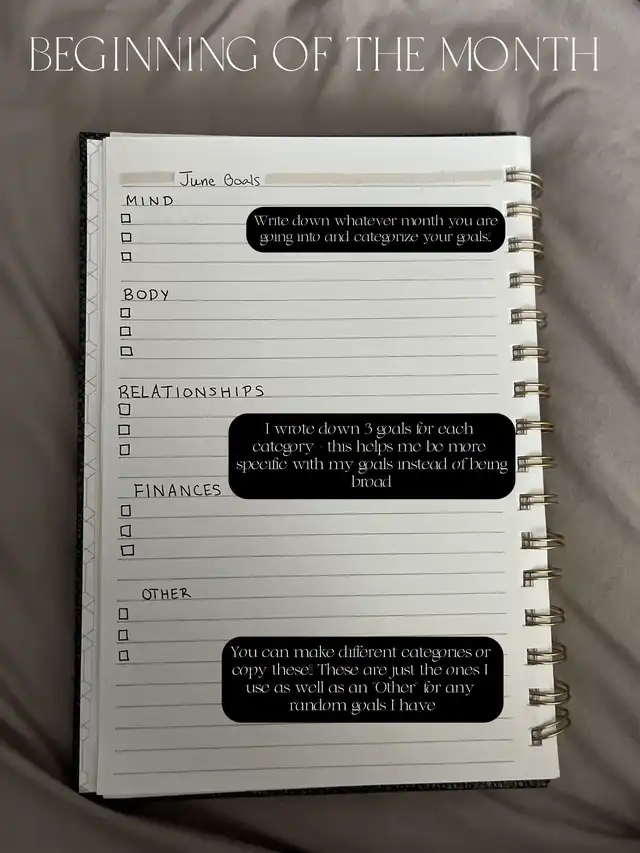 BEGINNING OF THE MONTH
June Goals
MIND
Write down whatever month you are
going into and categorize your goals!
BODY
RELATIONSHIPS
I wrote down 3 goals for each
category - this helps me be more
specific with my goals instead of being
broad
FINANCES
OTHER
You can make different categories or
copy these!! These are just the ones I
use as well as an "Other" for any
random goals I have